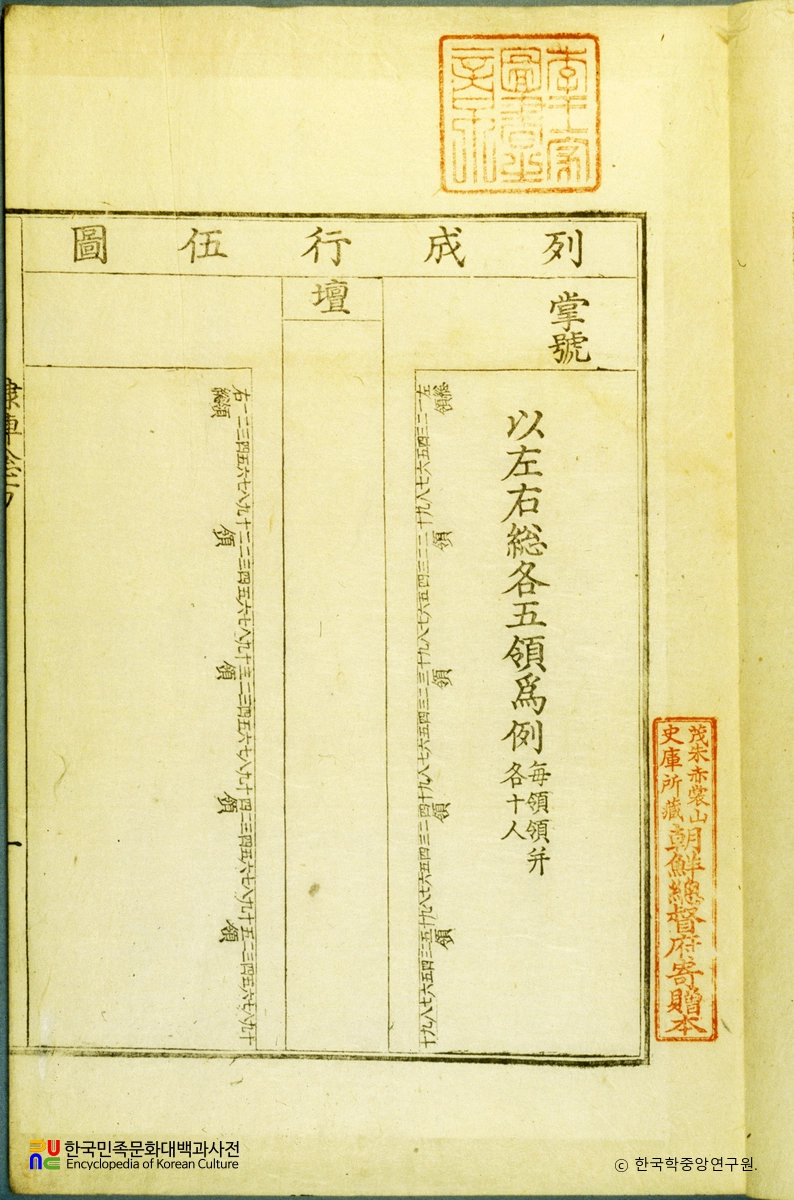 李王家
圖書之
章
列成行伍圖
掌號
以左右総各五領爲例
每領領并
各十人
総領 領 領 領 領
左一二三四五六七八九十二二三四五六七八九十三二三四五六七八九十四二三四五六七八九十五二三四五六七八九十
壇
右一二三四五六七八九十二二三四五六七八九十三二三四五六七八九十四二三四五六七八九十五二三四五六七八九十
総領 領 領 領 領
一
茂朱赤裳山
史庫所藏
朝鮮總督府寄贈本
한국민족문화대백과사전
Encyclopedia of Korean Culture
ⓒ 한국학중앙연구원.